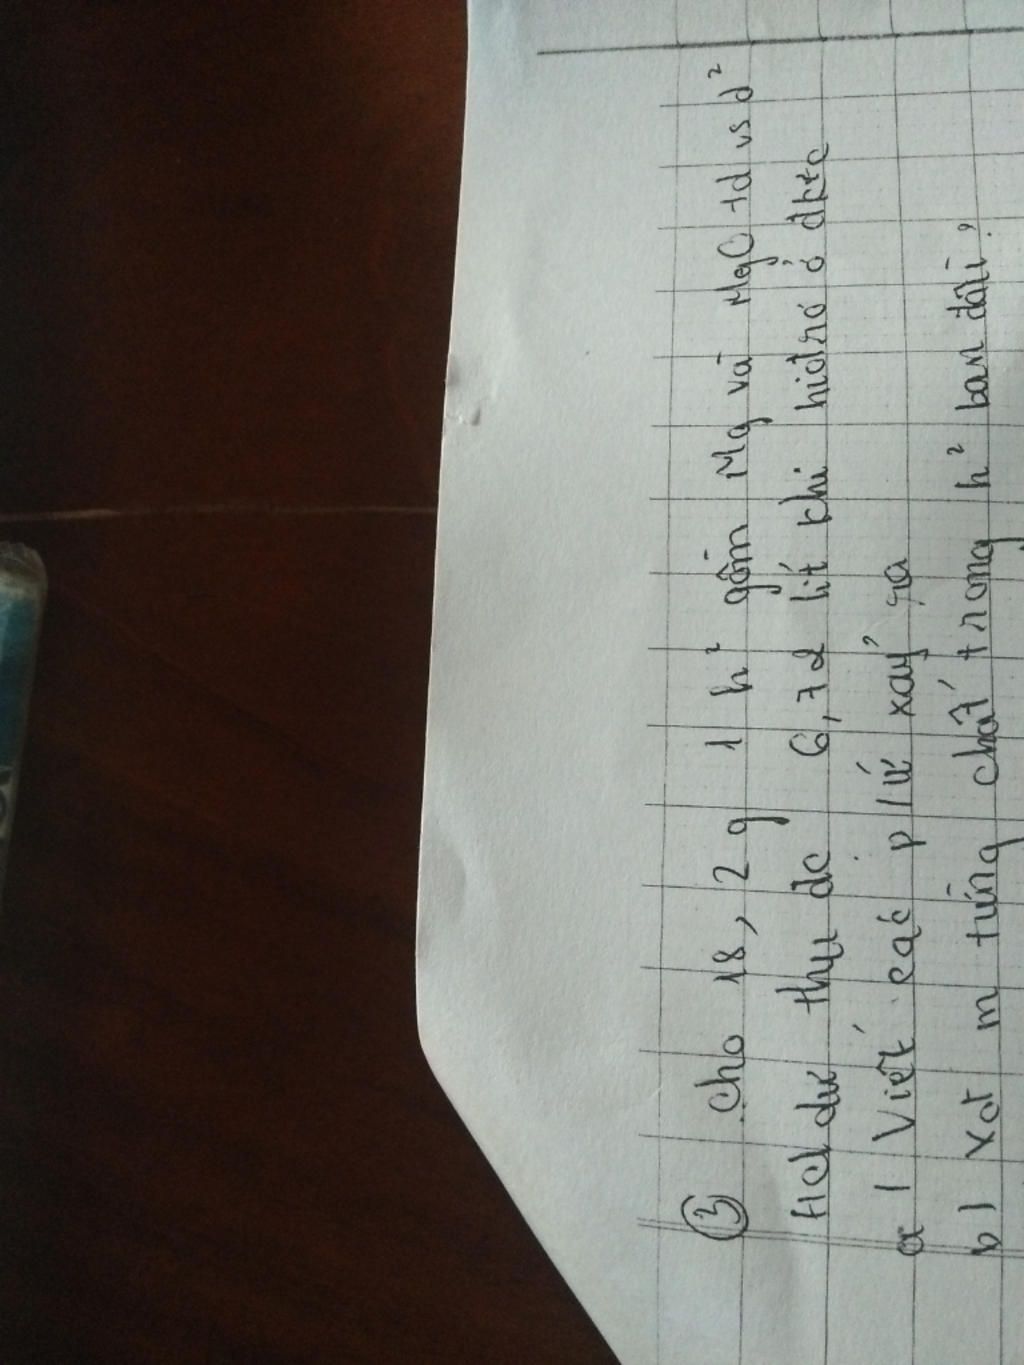 ③ Cho 18,2g 1 h² gồm Mg và MgO td vs d²
HCl dư thu đc 6,72 lít khí hidro ở đktc
a/ Viết các p/ứ xảy ra
b/ Xđ m từng chất trong h² ban đầu?